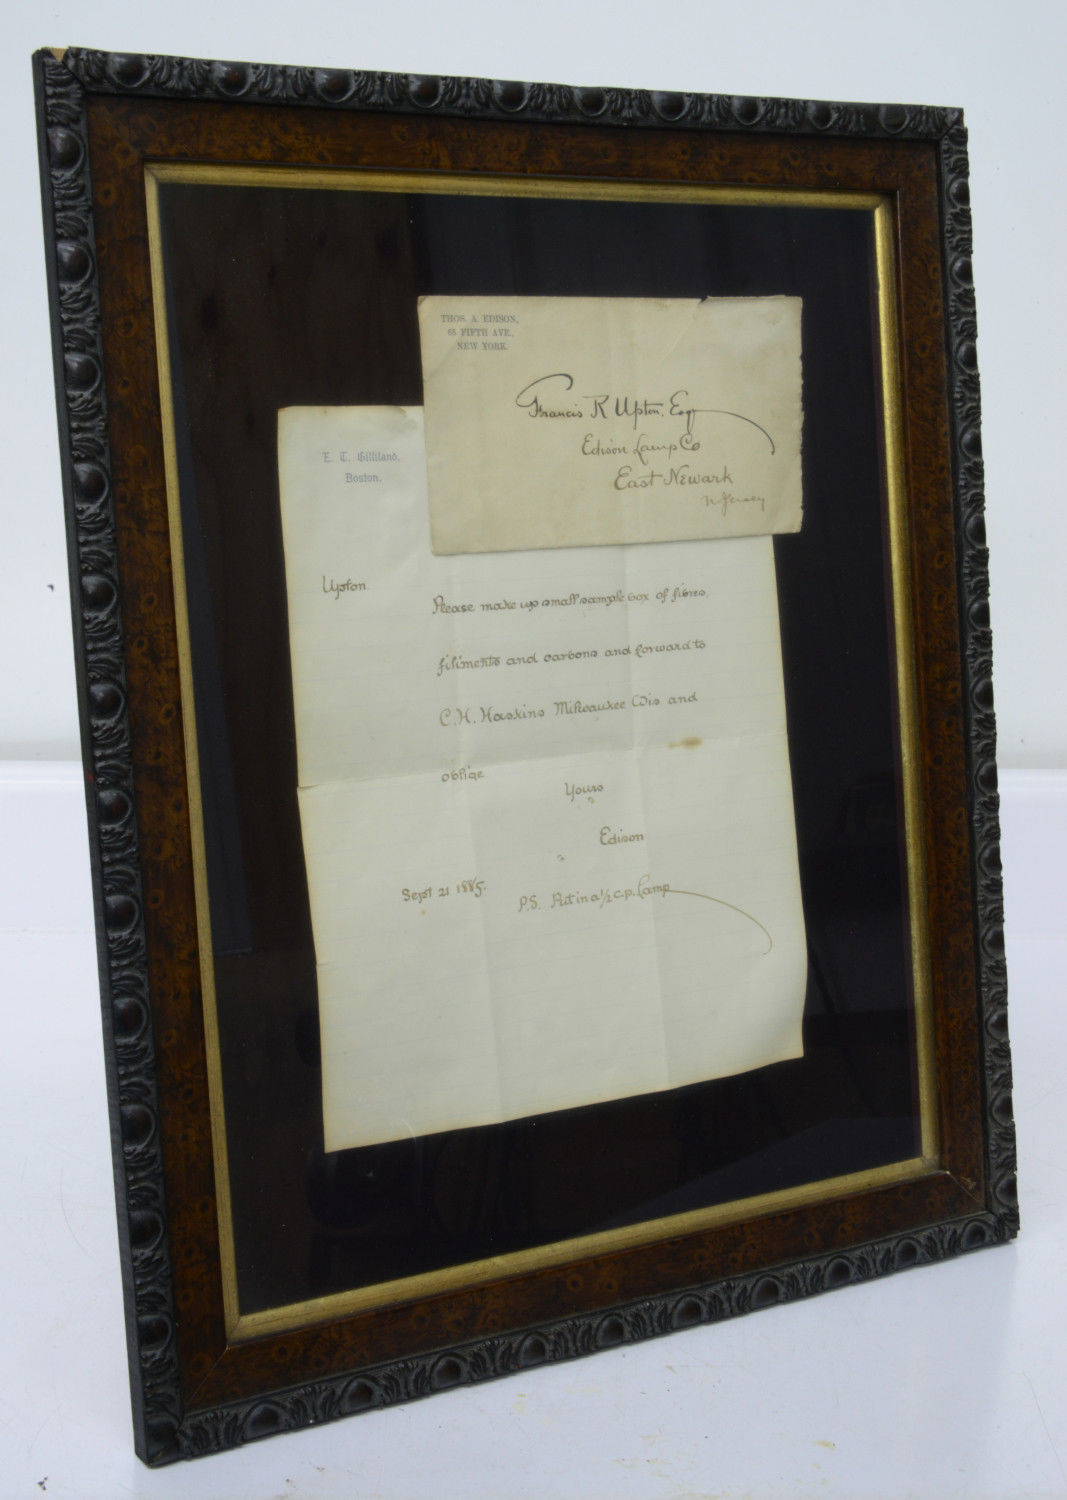 THOS. A. EDISON,
65 FIFTH AVE.,
NEW YORK.
Francis R Upton, Esq
Edison Lamp Co
East Newark
N Jersey
E. T. Gilliland,
Boston.
Upton
Please make up small sample box of fibres,
filiments and carbons and forward to
C.H. Haskins Milwaukee Wis and
oblige
Yours
Edison
Sept 21 1885.
P.S. Put in a 1/2 c.p. Lamp